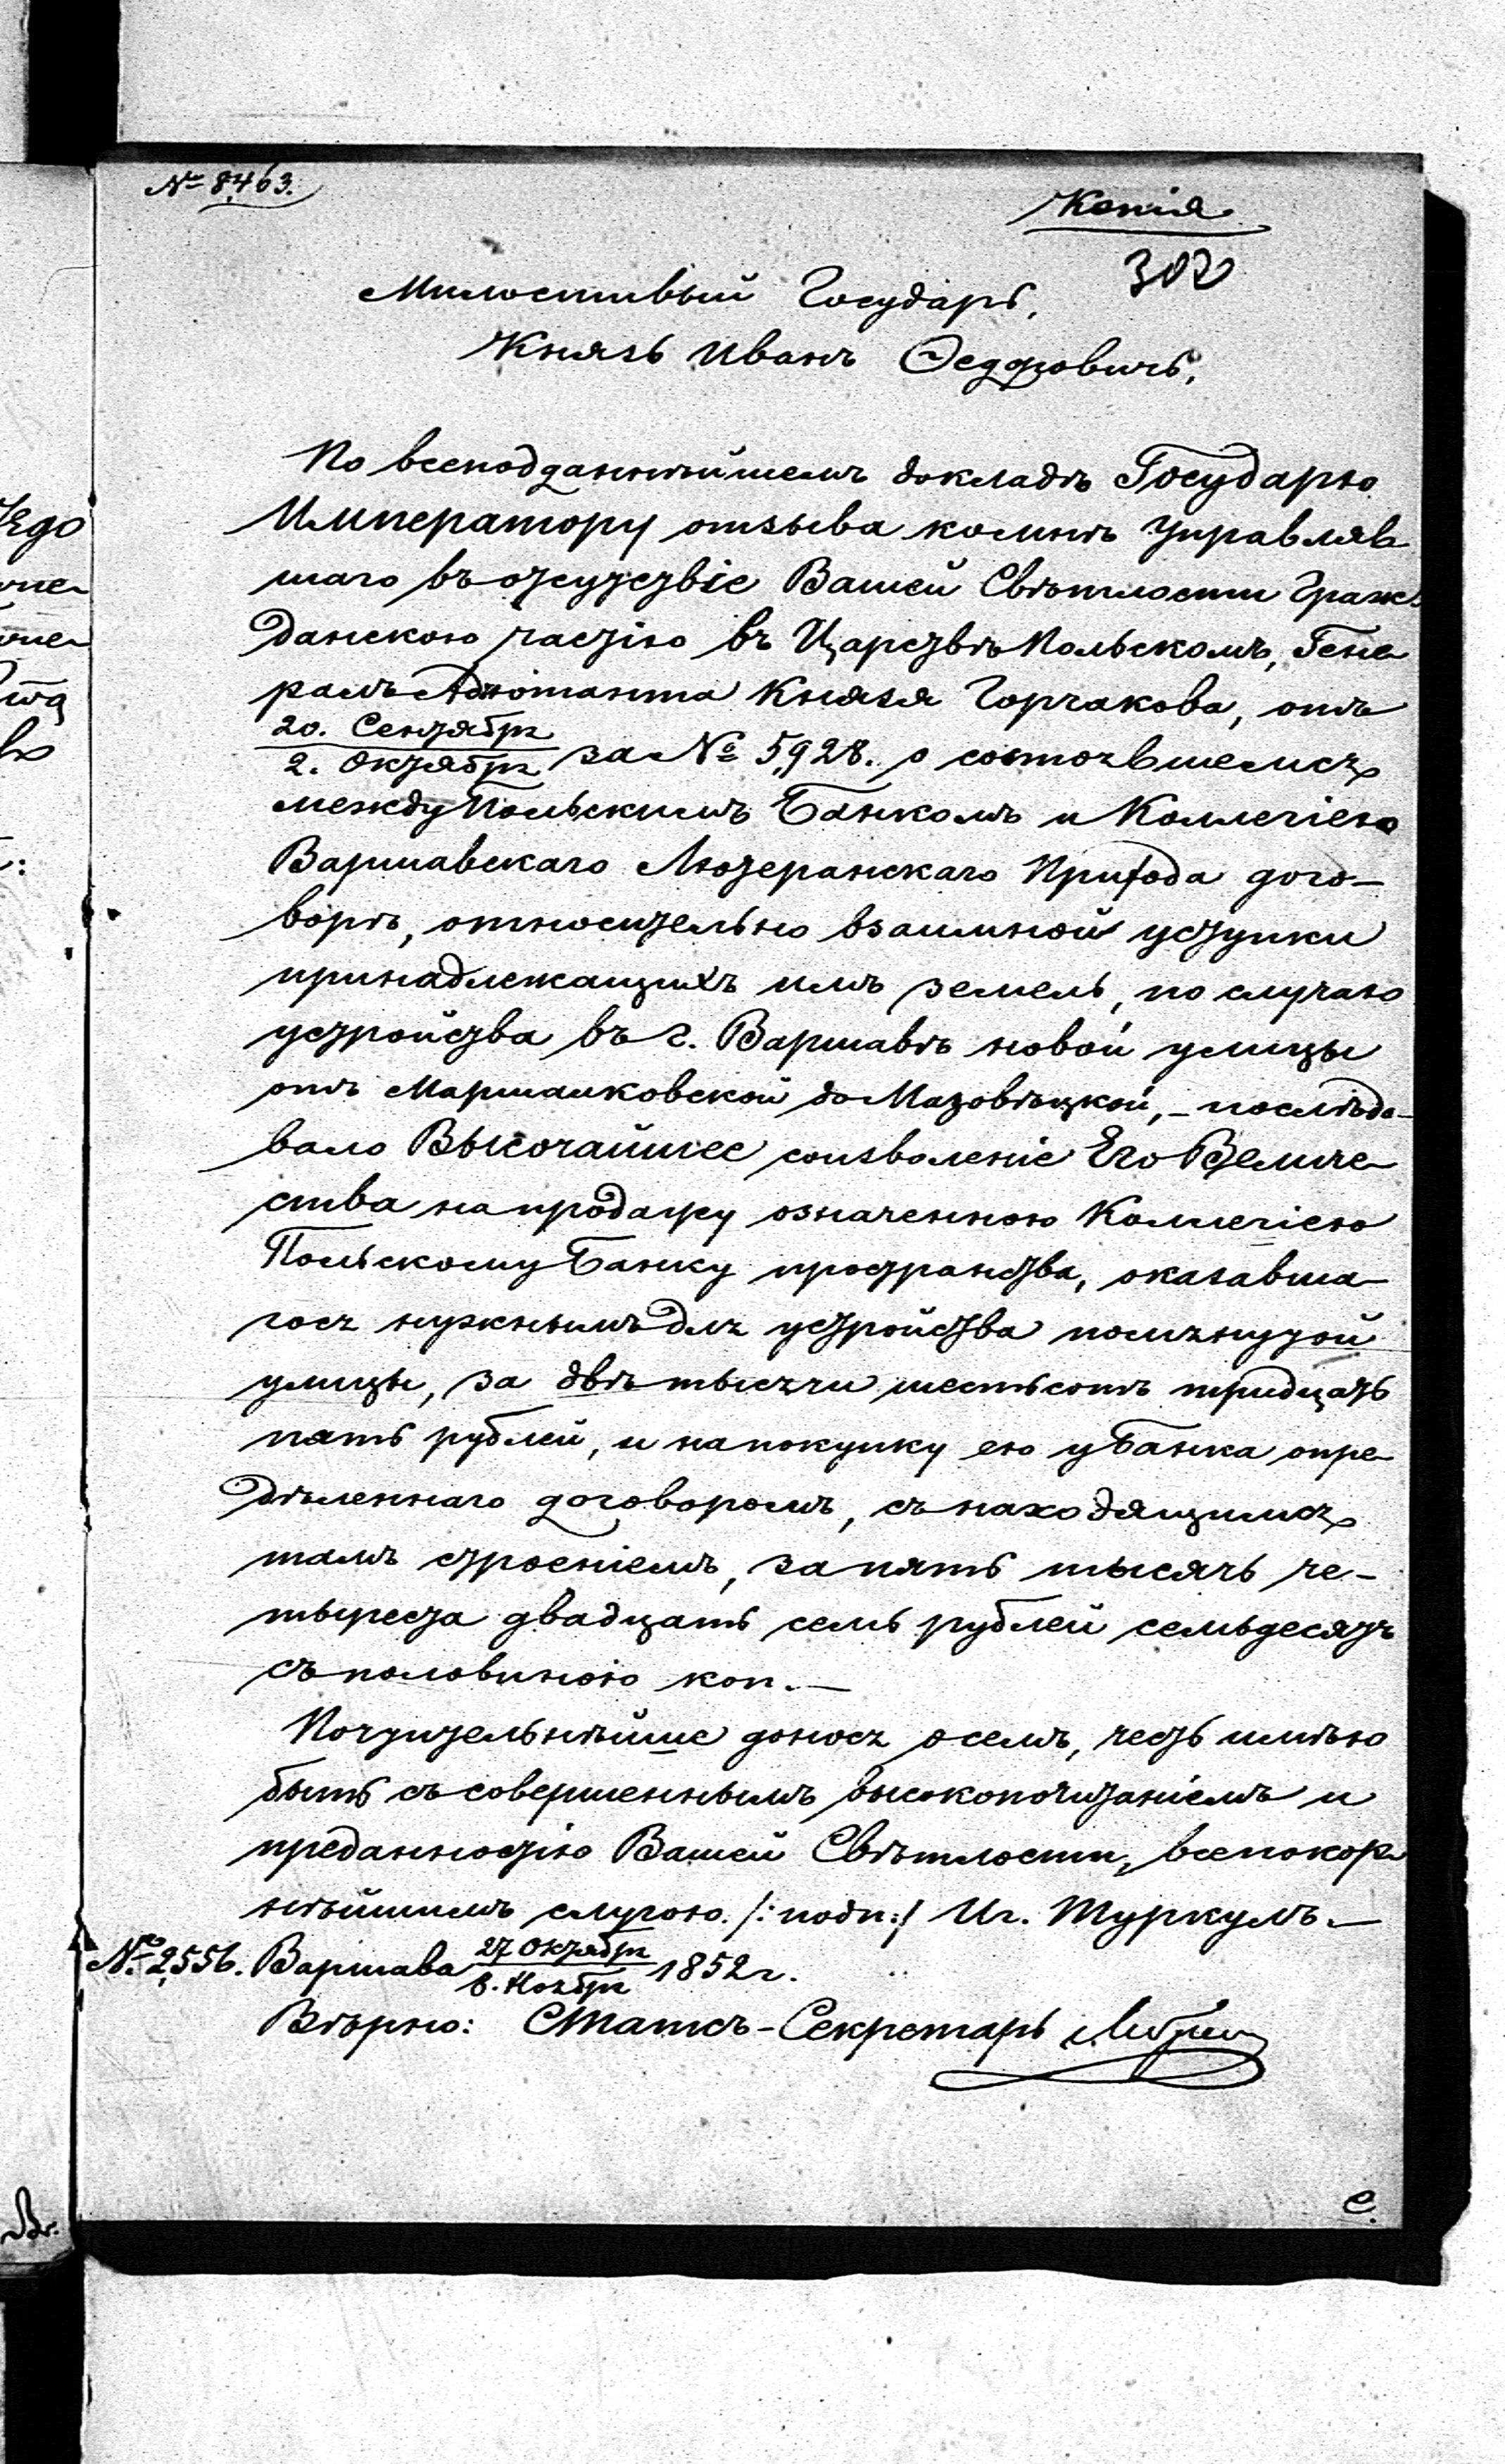 № 8,463.
Копія
302
Милостивый Государь,
Князь Иванъ Ѳедоровичъ,
По всеподданнѣйшемъ докладѣ Государю
Императору отзыва ко мнѣ Управляв
шаго въ отсутствіе Вашей Свѣтлости Граж
данскою частію въ Царствѣ Польскомъ, Гене
ралъ Адъютанта Князя Горчакова, отъ
20. Сентября
2. Октября за № 5,928. о состоявшемся
между Польскимъ Банкомъ и Коллегіею
Варшавскаго Лютеранскаго Прихода дого-
ворѣ, относительно взаимной уступки
принадлежащихъ имъ земель, по случаю
устройства въ г. Варшавѣ новой улицы
отъ Маршалковской до Мазовѣцкой, - послѣдо-
вало Высочайшее соизволеніе Его Величе
ства на продажу означенною Коллегіею
Польскому Банку пространства, оказавша-
гося нужнымъ для устройства помянутой
улицы, за двѣ тысячи шестьсотъ тридцать
пять рублей, и на покупку ею у Банка опре
дѣленнаго договоромъ, съ находящимся
тамъ строеніемъ, за пять тысячъ че-
тыреста двадцать семь рублей семьдесятъ
съ половиною коп. —
Почтительнѣйше донося о семъ, честь имѣю
быть съ совершеннымъ высокопочитаніемъ и
преданностію Вашей Свѣтлости, всепокор
нѣйшимъ слугою. /: подп:/ Иг. Туркулъ. —
№ 2,556. Варшава 27 Октября
8. Ноября 1852 г.
Вѣрно: Статсъ-Секретарь
С.